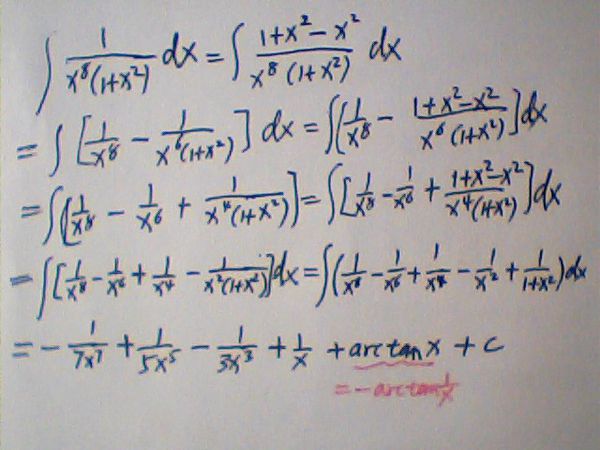 ∫ 1/(x⁸(1+x²)) dx = ∫ (1+x²-x²)/(x⁸(1+x²)) dx
= ∫ [1/x⁸ - 1/(x⁶(1+x²))] dx = ∫ [1/x⁸ - (1+x²-x²)/(x⁶(1+x²))] dx
= ∫ [1/x⁸ - 1/x⁶ + 1/(x⁴(1+x²))] = ∫ [1/x⁸ - 1/x⁶ + (1+x²-x²)/(x⁴(1+x²))] dx
= ∫ [1/x⁸ - 1/x⁶ + 1/x⁴ - 1/(x²(1+x²))] dx = ∫ (1/x⁸ - 1/x⁶ + 1/x⁴ - 1/x² + 1/(1+x²)) dx
= - 1/(7x⁷) + 1/(5x⁵) - 1/(3x³) + 1/x + arctan x + c
= -arctan 1/x